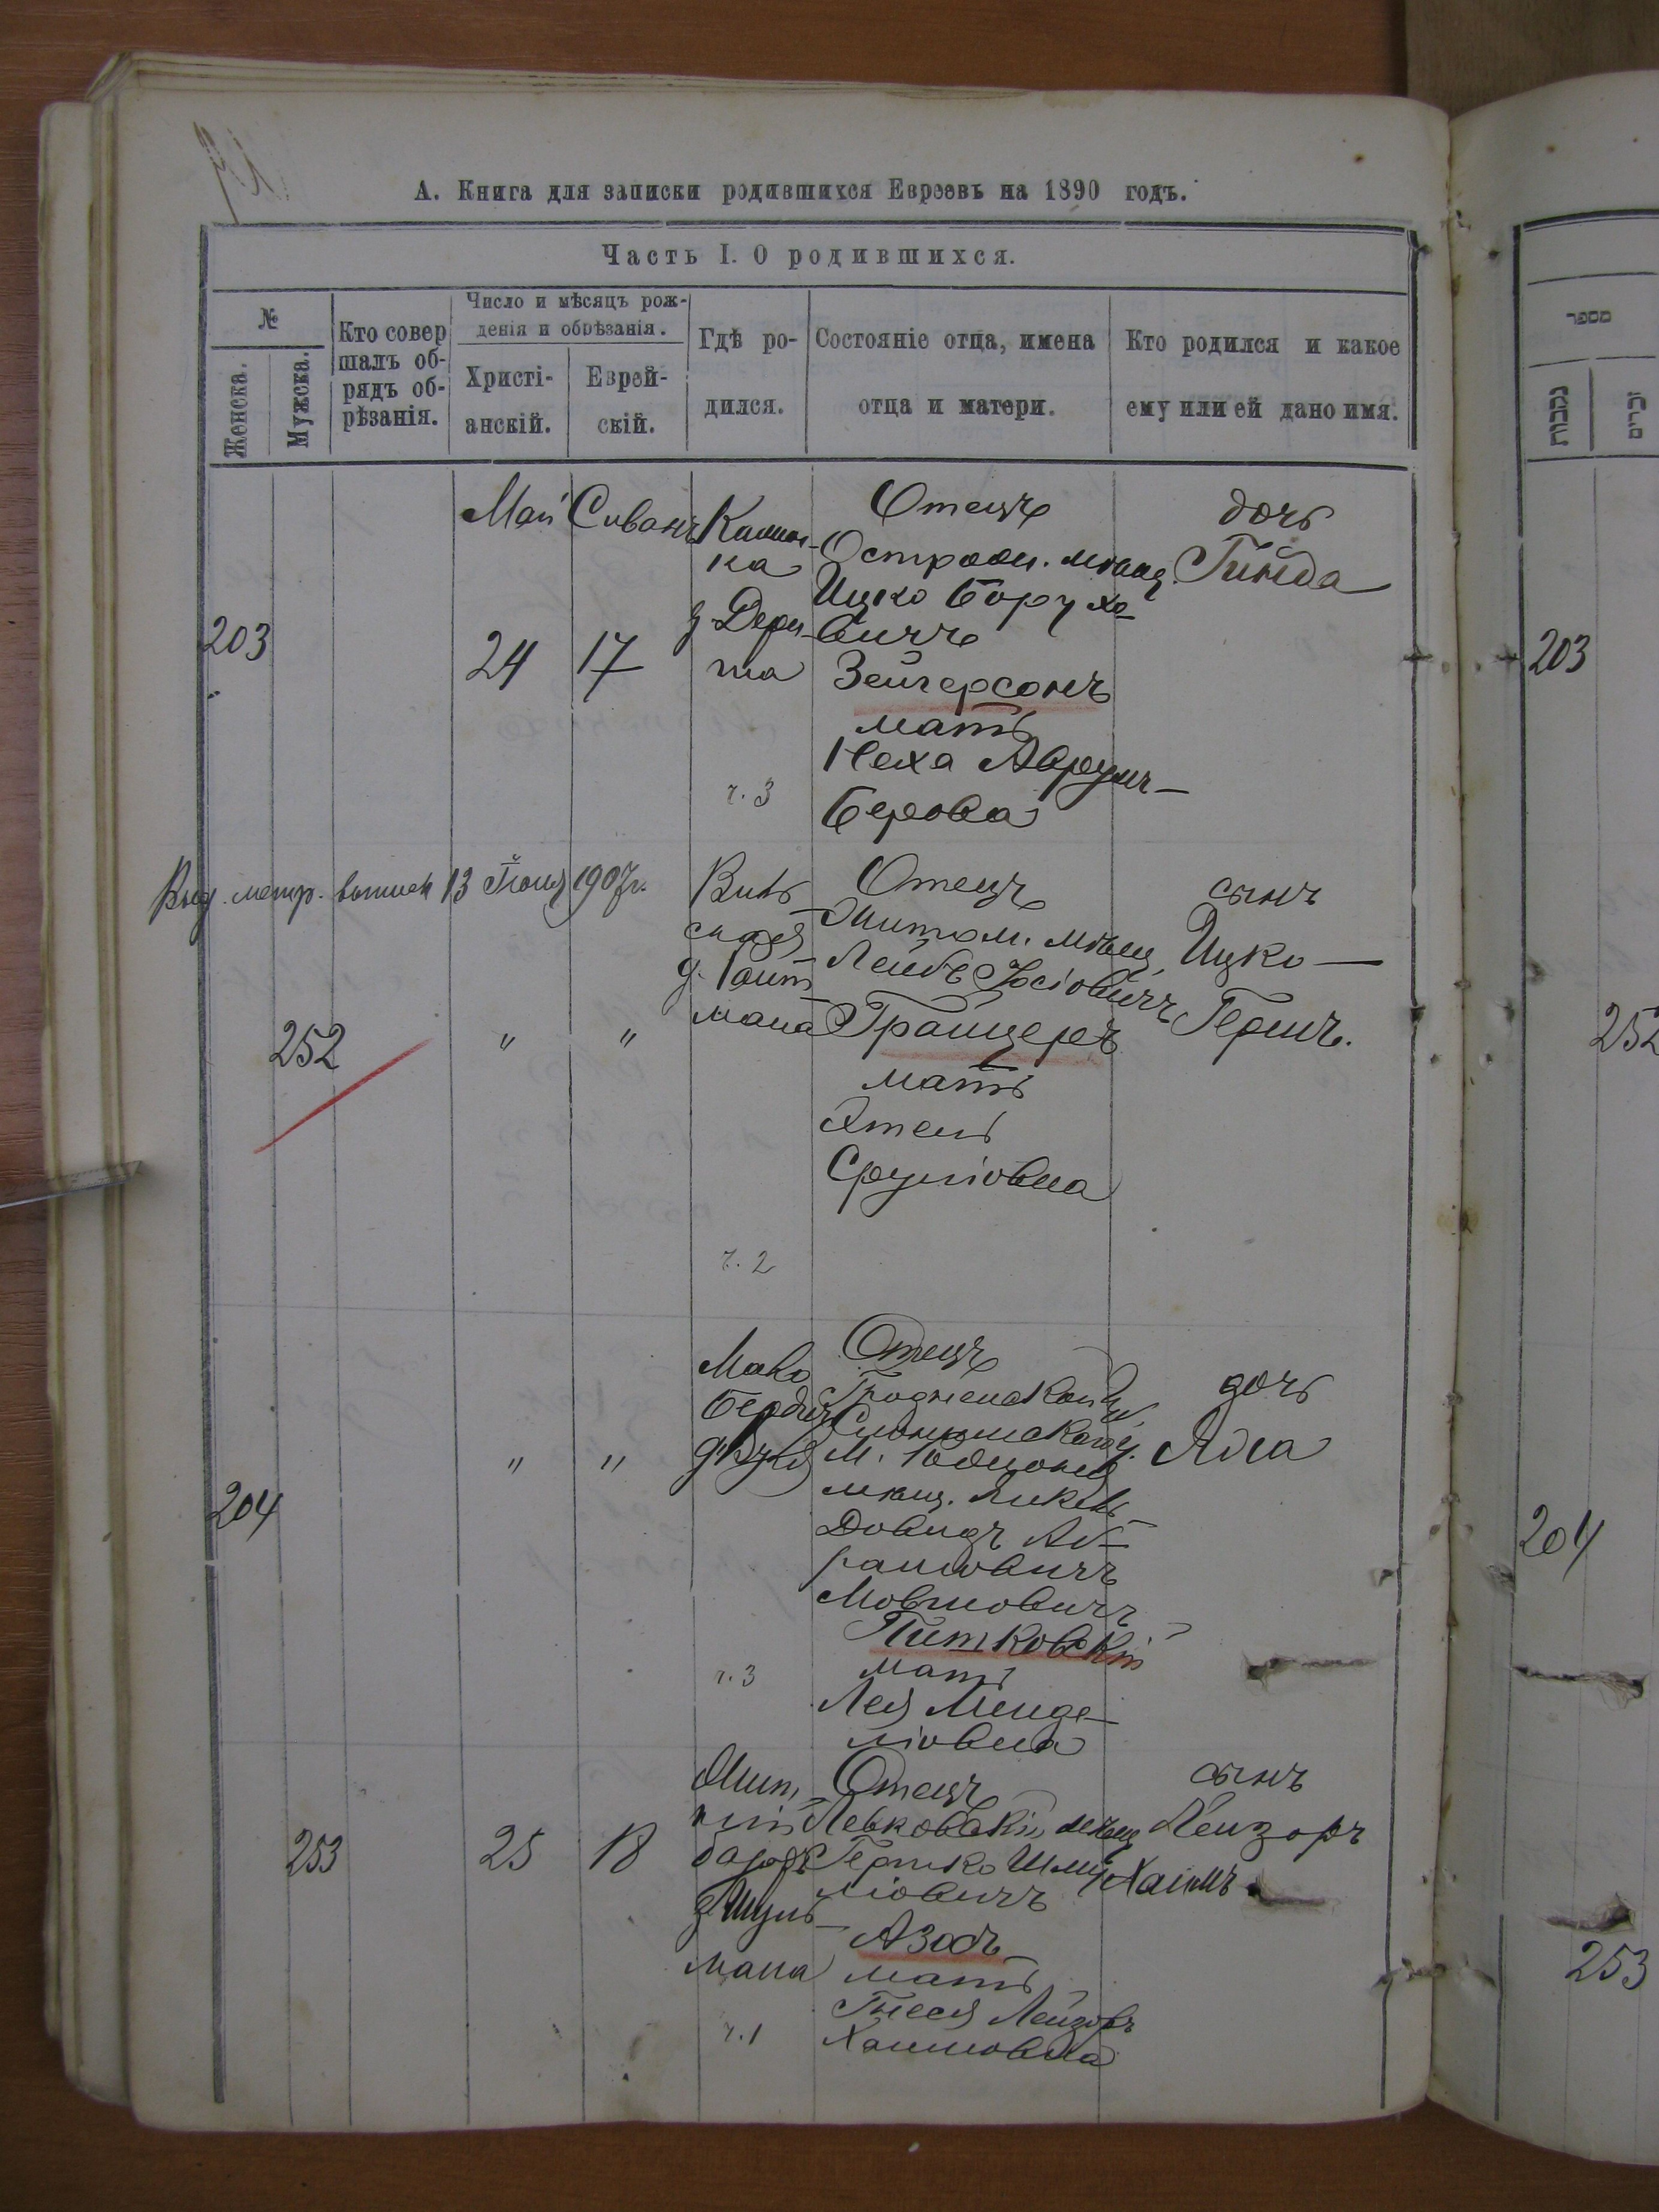 А. Книга для записки родившихся Евреевъ на 1890 годъ.
Часть I. О родившихся.
№
Женска.
Мужска.
Кто совер
шалъ об-
рядъ об-
рѣзанія.
Число и мѣсяцъ рож-
денія и обрѣзанія.
Христі-
анскій.
Еврей-
скій.
Гдѣ ро-
дился.
Состояніе отца, имена
отца и матери.
Кто родился и какое
ему или ей дано имя.
203
Май
24
Сиванъ
17
ка
ч. 3
Отецъ
мѣщ.
Ицко Борухо-
вичъ
Зейгерсонъ
мать
Неха Аврумъ-
Берова
дочь
Гинда
Выд. метр. выписъ 13 Іюня 1907 г.
252
"
"
ская
мана
ч. 2
Отецъ
Житом. мѣщ
Лейбъ Іосіовичъ
Гранцеръ
мать
Этель
Сруліовна
сынъ
Ицко-
Гершъ.
204
"
"
ч. 3
Отецъ
Гродненской г.
Слонимскаго у.
мѣщ.
Довидъ Аб-
рамовичъ
Мовшовичъ
Питковскій
мать
Лея Менде-
ліовна
дочь
253
25
18
базаръ
д. Шуль-
мана
ч. 1
Отецъ
Левковскій мѣщ
Гершко Шму-
ліовичъ
Азовъ
мать
Гнеся Лейзоръ
Хаимовна
сынъ
Лейзоръ
Хаимъ
מספר
נקבות
זכרים
203
252
204
253